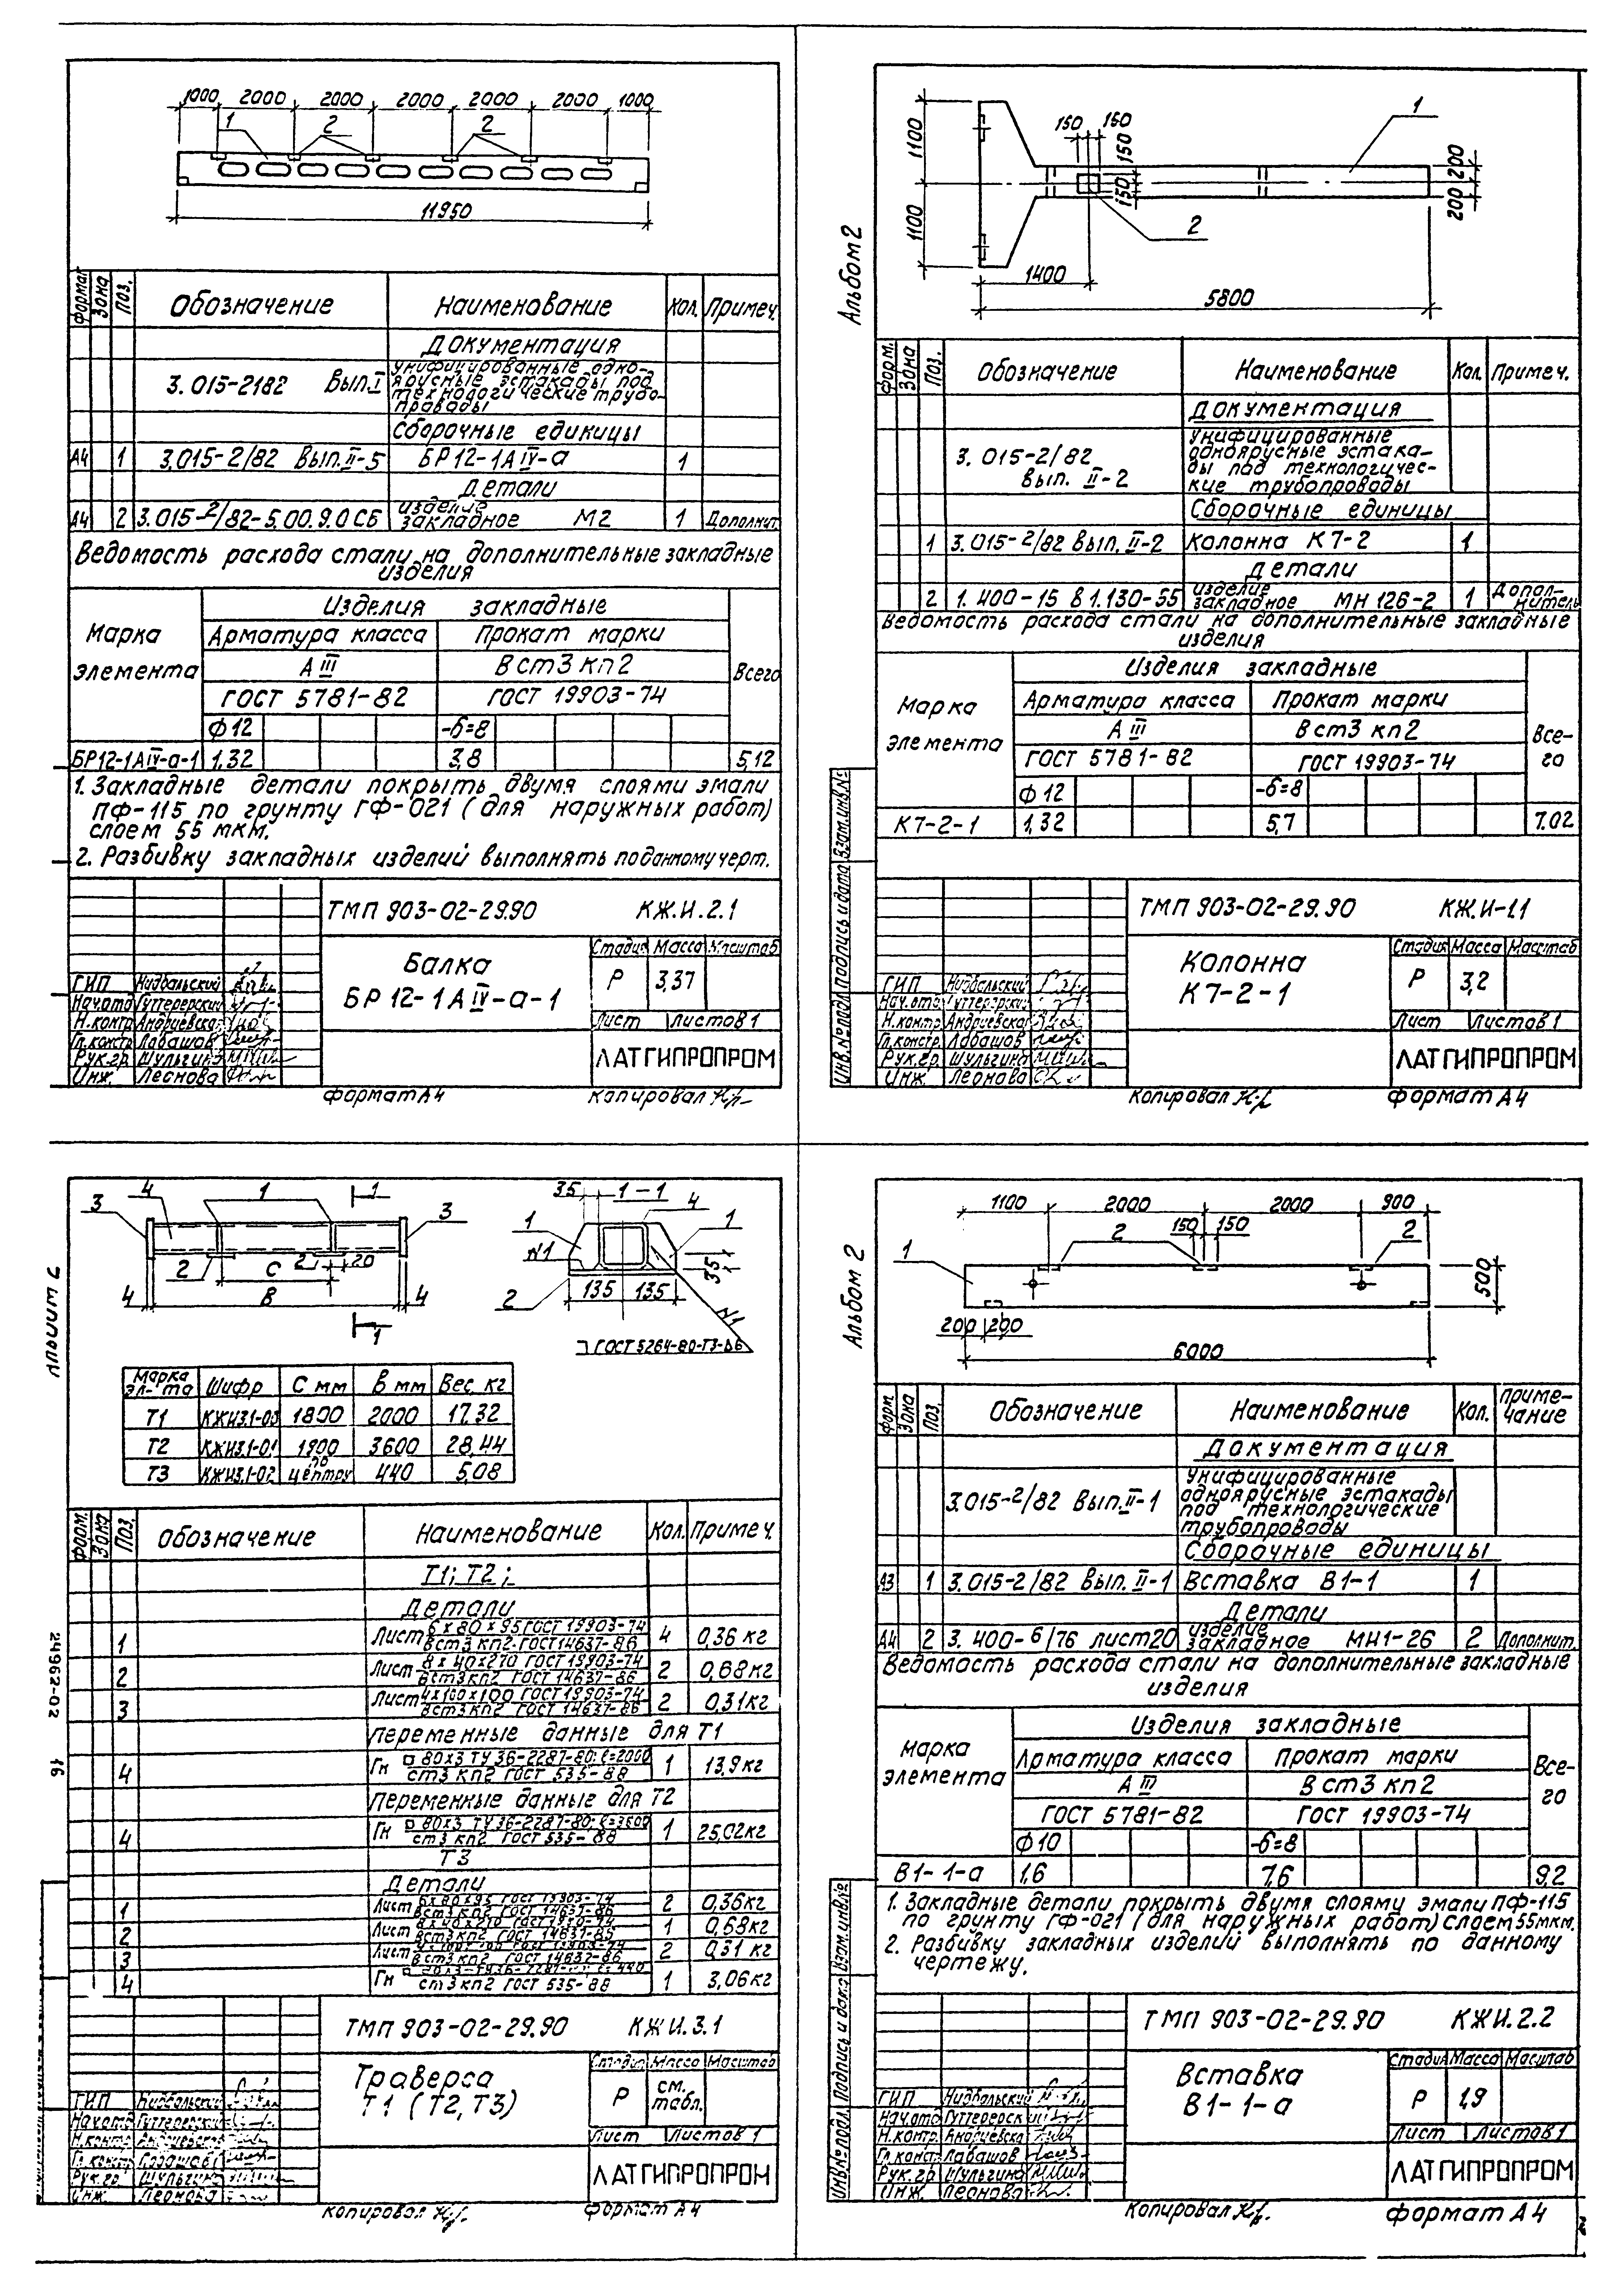 1000 2000 2000 2000 2000 2000 1000
1 2 2
11950
Формат Зона Поз. Обозначение Наименование Кол. Примеч.
Документация
3.015-2182 Вып.I Унифицированные одно-
ярусные эстакады под
технологические трубо-
проводы
Сборочные единицы
А4 1 3.015-2/82 Вып.II-5 БР12-1АIV-а 1
Детали
А4 2 3.015-2/82-5.00.9.0СБ изделие закладное М2 1 Дополнит.
Ведомость расхода стали на дополнительные закладные
изделия
Марка элемента
Изделия закладные
Арматура класса Прокат марки
АIII Вст3кп2 Всего
ГОСТ 5781-82 ГОСТ 19903-74
Ф12 -б=8
БР12-1АIV-а-1 1,32 3,8 5,12
1. Закладные детали покрыть двумя слоями эмали
ПФ-115 по грунту ГФ-021 (для наружных работ)
слоем 55 мкм.
2. Разбивку закладных изделий выполнять по данному черт.
ТМП 903-02-29.90 КЖ.И.2.1
Балка
БР12-1АIV-а-1
Стадия Масса Масштаб
Р 3,37
Лист Листов 1
ГИП Нидбальский
Нач.отд Гуттерерский
Н.контр. Андриевская
Гл.констр Лавашов
Рук.гр. Шульгина
Инж. Леонова
ЛАТГИПРОПРОМ
Формат А4 Копировал
Альбом 2
1100 1100
150 150 150 150
1 2
200 200
1400
5800
Форм. Зона Поз. Обозначение Наименование Кол. Примеч.
Документация
3.015-2/82
вып. II-2
Унифицированные
одноярусные эстака-
ды под технологичес-
кие трубопроводы
Сборочные единицы
1 3.015-2/82 Вып. II-2 Колонна К7-2 1
Детали
2 1.400-15 В1.130-55 изделие закладное МН 126-2 1 Дополнитель
Ведомость расхода стали на дополнительные закладные
изделия
Марка элемента
Изделия закладные
Арматура класса Прокат марки
АIII Вст3кп2 Все-
го
ГОСТ 5781-82 ГОСТ 19903-74
Ф12 -б=8
К7-2-1 1,32 5,7 7.02
ТМП 903-02-29.90 КЖ.И-1.1
Колонна
К7-2-1
Стадия Масса Масштаб
Р 3,2
Лист Листов 1
ГИП Нидбальский
Нач.отд Гуттерерский
Н.контр. Андриевская
Гл.констр Лавашов
Рук.гр. Шульгина
Инж. Леонова
ЛАТГИПРОПРОМ
Копировал Формат А4
Инв.№подл Подпись и дата Взам.инв.№
Альбом 2
24962-02 16
3 4 1 1 3
2 С 2 20
4 В 4
1
35 1-1 4
1 1
N1
35
2 135 135
N1
ГОСТ 5264-80-Т3-Δ6
Марка эл-та Шифр С мм В мм Вес, кг
Т1 КЖИ3.1-03 1800 2000 17,32
Т2 КЖИ3.1-01 1900 3600 28,44
Т3 КЖИ3.1-02 по центру 440 5,08
Форм. Зона Поз. Обозначение Наименование Кол. Примеч.
Т1; Т2;
Детали
1 Лист 6х80х95 ГОСТ 19903-74 / Вст3кп2 ГОСТ 14637-86 4 0,36 кг
2 Лист 8х40х270 ГОСТ 19903-74 / Вст3кп2 ГОСТ 14637-86 2 0,68 кг
3 Лист 4х100х100 ГОСТ 19903-74 / Вст3кп2 ГОСТ 14637-86 2 0,31кг
Переменные данные для Т1
4 Гн □ 80х3 ТУ 36-2287-80; ℓ=2000 / ст3кп2 ГОСТ 535-88 1 13,9кг
Переменные данные для Т2
4 Гн □ 80х3 ТУ 36-2287-80; ℓ=3600 / ст3кп2 ГОСТ 535-88 1 25,02кг
Т3
Детали
1 Лист 6х80х95 ГОСТ 19903-74 / Вст3кп2 ГОСТ 14637-86 2 0,36кг
2 Лист 8х40х270 / Вст3кп2 ГОСТ 14637-86 1 0,68кг
3 Лист / Вст3кп2 ГОСТ 14637-86 2 0,31 кг
4 Гн ℓ=440 / ст3кп2 ГОСТ 535-88 1 3,06кг
ТМП 903-02-29.90 КЖИ.3.1
Траверса
Т1 (Т2, Т3)
Стадия Масса Масштаб
Р см. табл.
Лист Листов 1
ГИП Нидбальский
Нач.отд Гуттерерский
Н.контр. Андриевская
Гл.констр Лавашов
Рук.гр. Шульгина
Инж. Леонова
ЛАТГИПРОПРОМ
Копировал Формат А4
Альбом 2
1100 2000 2000 900
150 150
1 2 2
500
200 200
6000
Форм. Зона Поз. Обозначение Наименование Кол. Приме-
чание
Документация
3.015-2/82 Вып.II-1
Унифицированные
одноярусные эстакады
под технологические
трубопроводы
Сборочные единицы
А3 1 3.015-2/82 Вып. II-1 Вставка В1-1 1
Детали
А4 2 3.400-6/76 лист20 изделие закладное МН1-26 2 Дополнит.
Ведомость расхода стали на дополнительные закладные
изделия
Марка элемента
Изделия закладные
Арматура класса Прокат марки
АIII Вст3кп2 Все-
го
ГОСТ 5781-82 ГОСТ 19903-74
Ф10 -б=8
В1-1-а 1,6 7,6 9,2
1. Закладные детали покрыть двумя слоями эмали ПФ-115
по грунту ГФ-021 (для наружных работ) слоем 55мкм.
2. Разбивку закладных изделий выполнять по данному
чертежу.
ТМП 903-02-29.90 КЖИ.2.2
Вставка
В1-1-а
Стадия Масса Масштаб
Р 1,9
Лист Листов 1
ГИП Нидбальский
Нач.отд Гуттерерский
Н.контр. Андриевская
Гл.констр Лавашов
Рук.гр Шульгина
Инж. Леонова
ЛАТГИПРОПРОМ
Копировал Формат А4
Инв.№подл. Подпись и дата Взам.инв.№